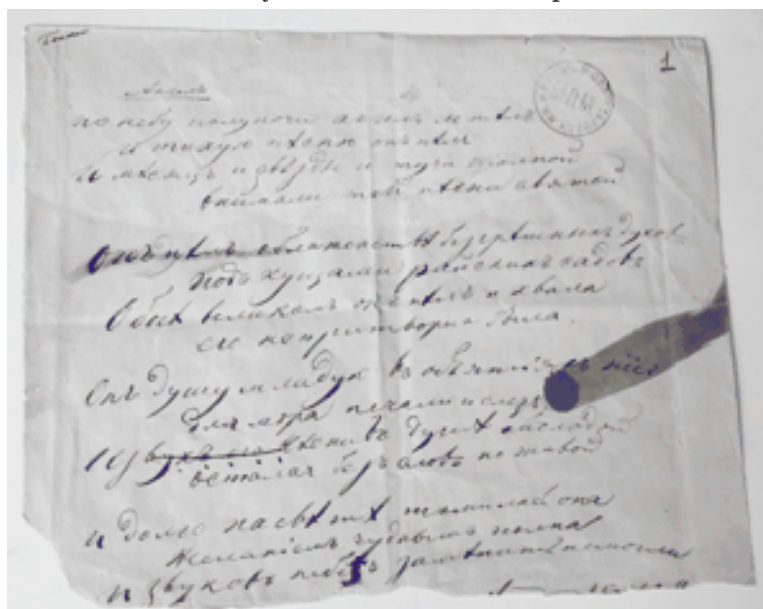 1
Ангелъ
по небу полуночи ангелъ летѣлъ
и тихую пѣсню онъ пѣлъ
И мѣсяцъ и звѣзды и тучи толпой
внимали той пѣсни святой
Онъ пѣлъ о блаженствѣ безгрѣшныхъ духовъ
Подъ кущами райскихъ садовъ
О богѣ великомъ онъ пѣлъ и хвала
его непритворна была.
Онъ душу младую въ объятіяхъ несъ
для мира печали и слезъ
И звукъ его пѣсни въ душѣ молодой
остался безъ словъ но живой
и долго на свѣтѣ томилась она
желаніемъ чуднымъ полна
и звуковъ небесъ замѣнить не могли